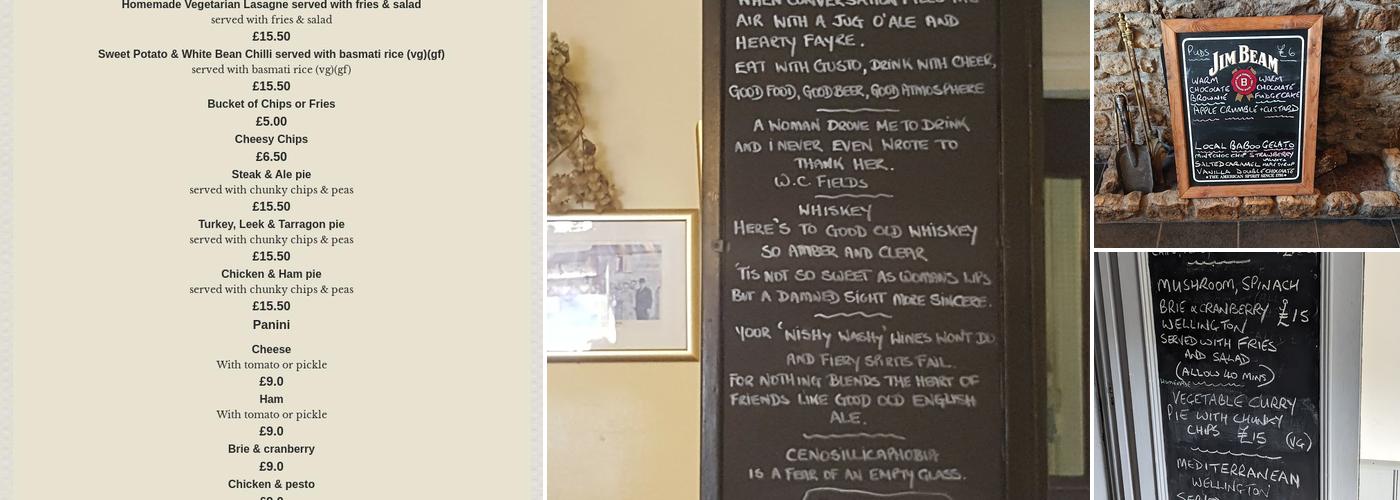 Homemade Vegetarian Lasagne served with fries & salad
served with fries & salad
£15.50
Sweet Potato & White Bean Chilli served with basmati rice (vg)(gf)
served with basmati rice (vg)(gf)
£15.50
Bucket of Chips or Fries
£5.00
Cheesy Chips
£6.50
Steak & Ale pie
served with chunky chips & peas
£15.50
Turkey, Leek & Tarragon pie
served with chunky chips & peas
£15.50
Chicken & Ham pie
served with chunky chips & peas
£15.50
Panini
Cheese
With tomato or pickle
£9.0
Ham
With tomato or pickle
£9.0
Brie & cranberry
£9.0
Chicken & pesto
£9.0
WHEN CONVERSATION FILLS THE
AIR WITH A JUG O'ALE AND
HEARTY FAYRE.
EAT WITH GUSTO, DRINK WITH CHEER,
GOOD FOOD, GOOD BEER, GOOD ATMOSPHERE
A WOMAN DROVE ME TO DRINK
AND I NEVER EVEN WROTE TO
THANK HER.
W.C FIELDS
WHISKEY
HERE'S TO GOOD OLD WHISKEY
SO AMBER AND CLEAR
'TIS NOT SO SWEET AS WOMANS LIPS
BUT A DAMNED SIGHT MORE SINCERE.
YOUR 'WISHY WASHY' WINES WON'T DO
AND FIERY SPIRITS FAIL.
FOR NOTHING BLENDS THE HEART OF
FRIENDS LIKE GOOD OLD ENGLISH
ALE.
CENOSILLICAPHOBIA
IS A FEAR OF AN EMPTY GLASS.
PUDS £6
JIM BEAM
B
WARM CHOCOLATE BROWNIE
WARM CHOCOLATE FUDGECAKE
APPLE CRUMBLE + CUSTARD
LOCAL BABOO GELATO
MINT CHOC CHIP STRAWBERRY
SALTED CARAMEL WALNUT & MAPLE SYRUP
VANILLA DOUBLE CHOCOLATE
THE AMERICAN SPIRIT SINCE 1795
MUSHROOM, SPINACH
BRIE & CRANBERRY £15
WELLINGTON
SERVED WITH FRIES
AND SALAD
(ALLOW 40 MINS)
HOMEMADE
VEGETABLE CURRY
PIE WITH CHUNKY
CHIPS £15 (VG)
MEDITERRANEAN
WELLINGTON